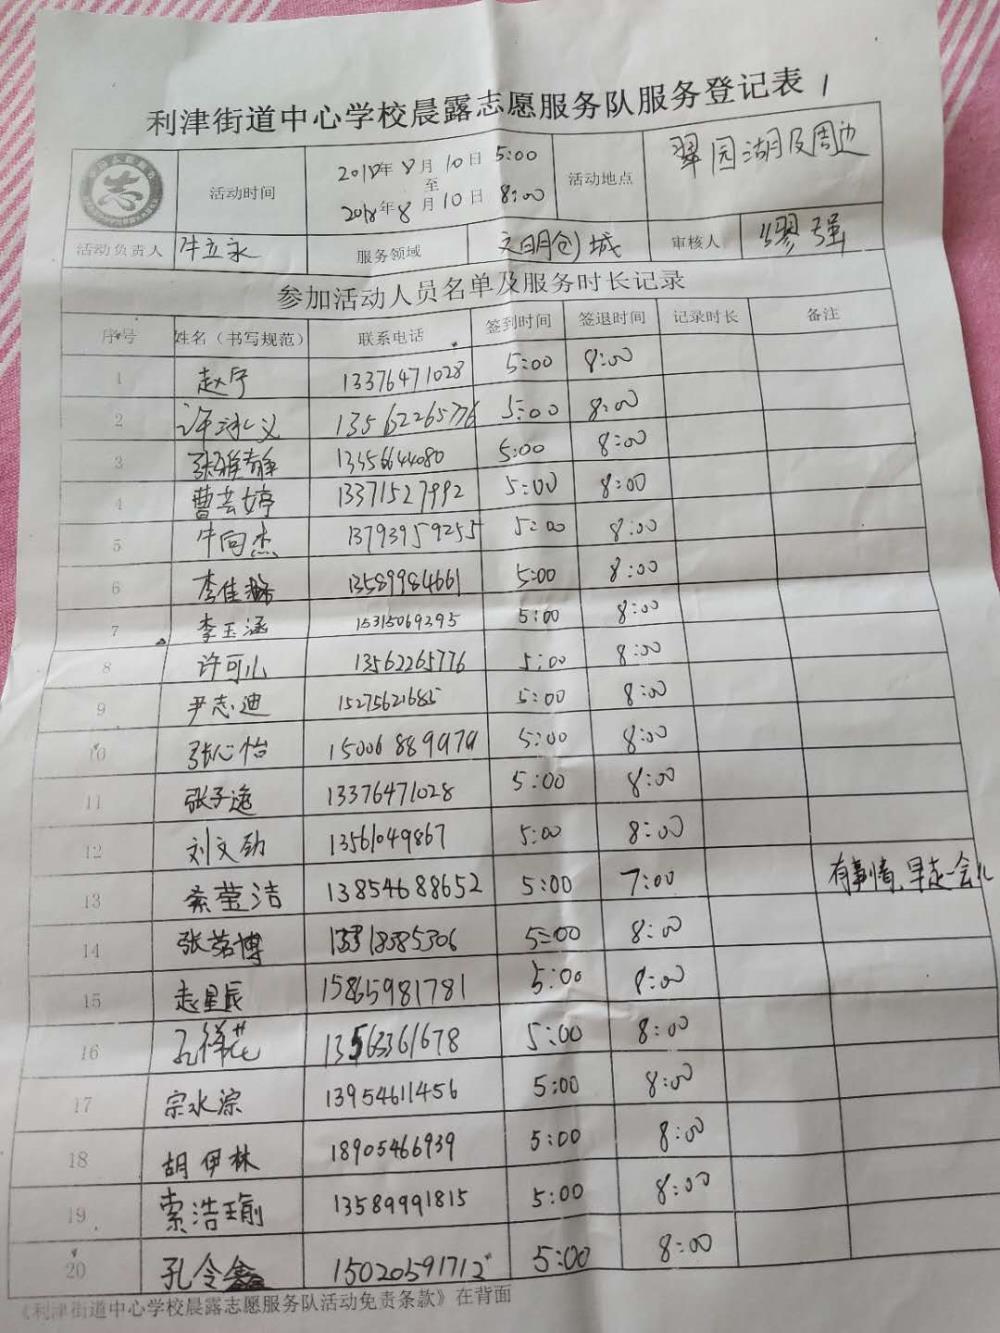 利津街道中心学校晨露志愿服务队服务登记表 1
志
活动时间 2018年8月10日 5:00 至 2018年8月10日 8:00 活动地点 翠园湖及周边
活动负责人 牛立永 服务领域 文明创城 审核人 缪强
参加活动人员名单及服务时长记录
序号 姓名（书写规范） 联系电话 签到时间 签退时间 记录时长 备注
1 赵宁 13376471028 5:00 8:00
2 许冰义 13562265776 5:00 8:00
3 张雅静 13356644080 5:00 8:00
4 曹芸婷 13371527992 5:00 8:00
5 牛向杰 13793959255 5:00 8:00
6 李佳 13589984661 5:00 8:00
7 李玉涵 15315069295 5:00 8:00
8 许可心 13562265776 5:00 8:00
9 尹志迪 15275621685 5:00 8:00
10 张心怡 15006889979 5:00 8:00
11 张子逸 13376471028 5:00 8:00
12 刘文勃 13561049867 5:00 8:00
13 綦莹洁 13854688652 5:00 7:00 有事情，早走一会儿
14 张茗博 5:00 8:00
15 赵星辰 15865981781 5:00 8:00
16 孔祥 13563361678 5:00 8:00
17 宗水淙 13954611456 5:00 8:00
18 胡伊林 18905466939 5:00 8:00
19 索浩瑜 13589991815 5:00 8:00
20 孔令鑫 15020591712 5:00 8:00
《利津街道中心学校晨露志愿服务队活动免责条款》在背面